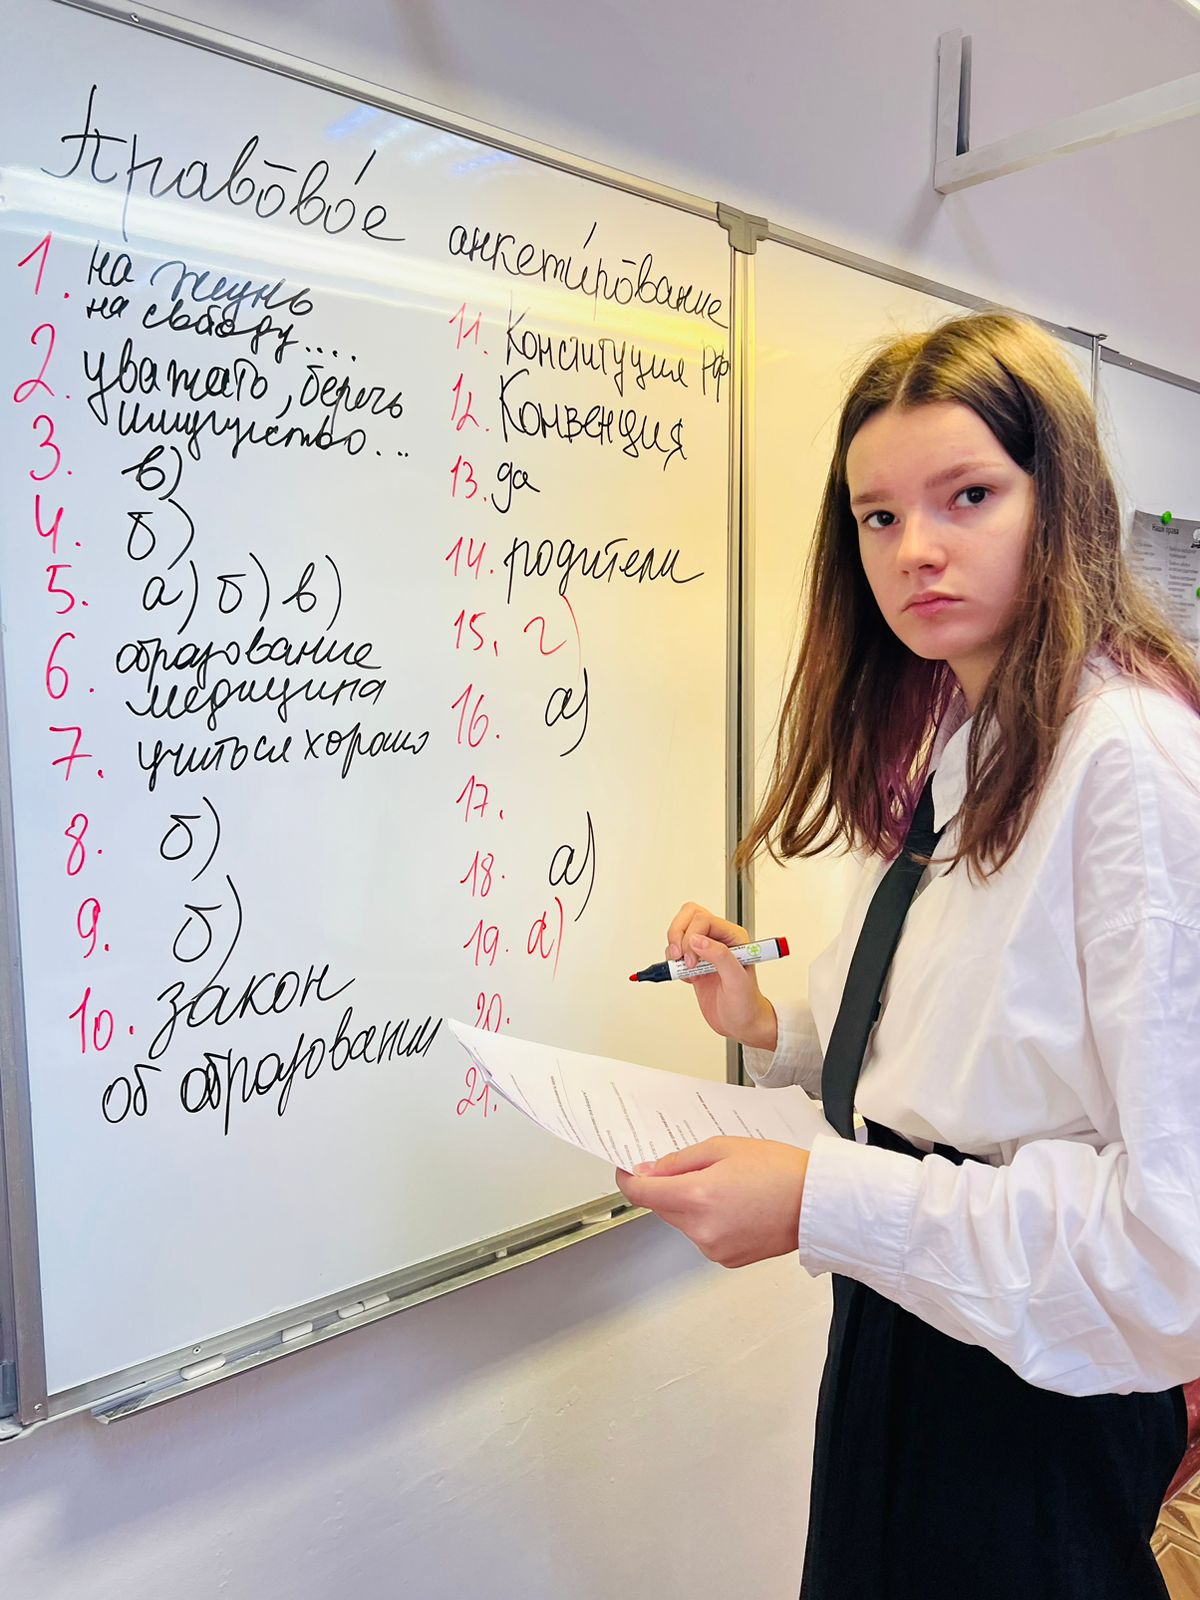 Правовое
анкетирование
1. на жизнь
на свободу....
2. уважать, беречь
имущество...
3. в)
4. б)
5. а) б) в)
6. образование
медицина
7. учиться хорошо
8. б)
9. б)
10. закон
об образовании
11. Конституция РФ
12. Конвенция
13. да
14. родители
15. г)
16. а)
17.
18. а)
19. а)
20.
21.
Наши права